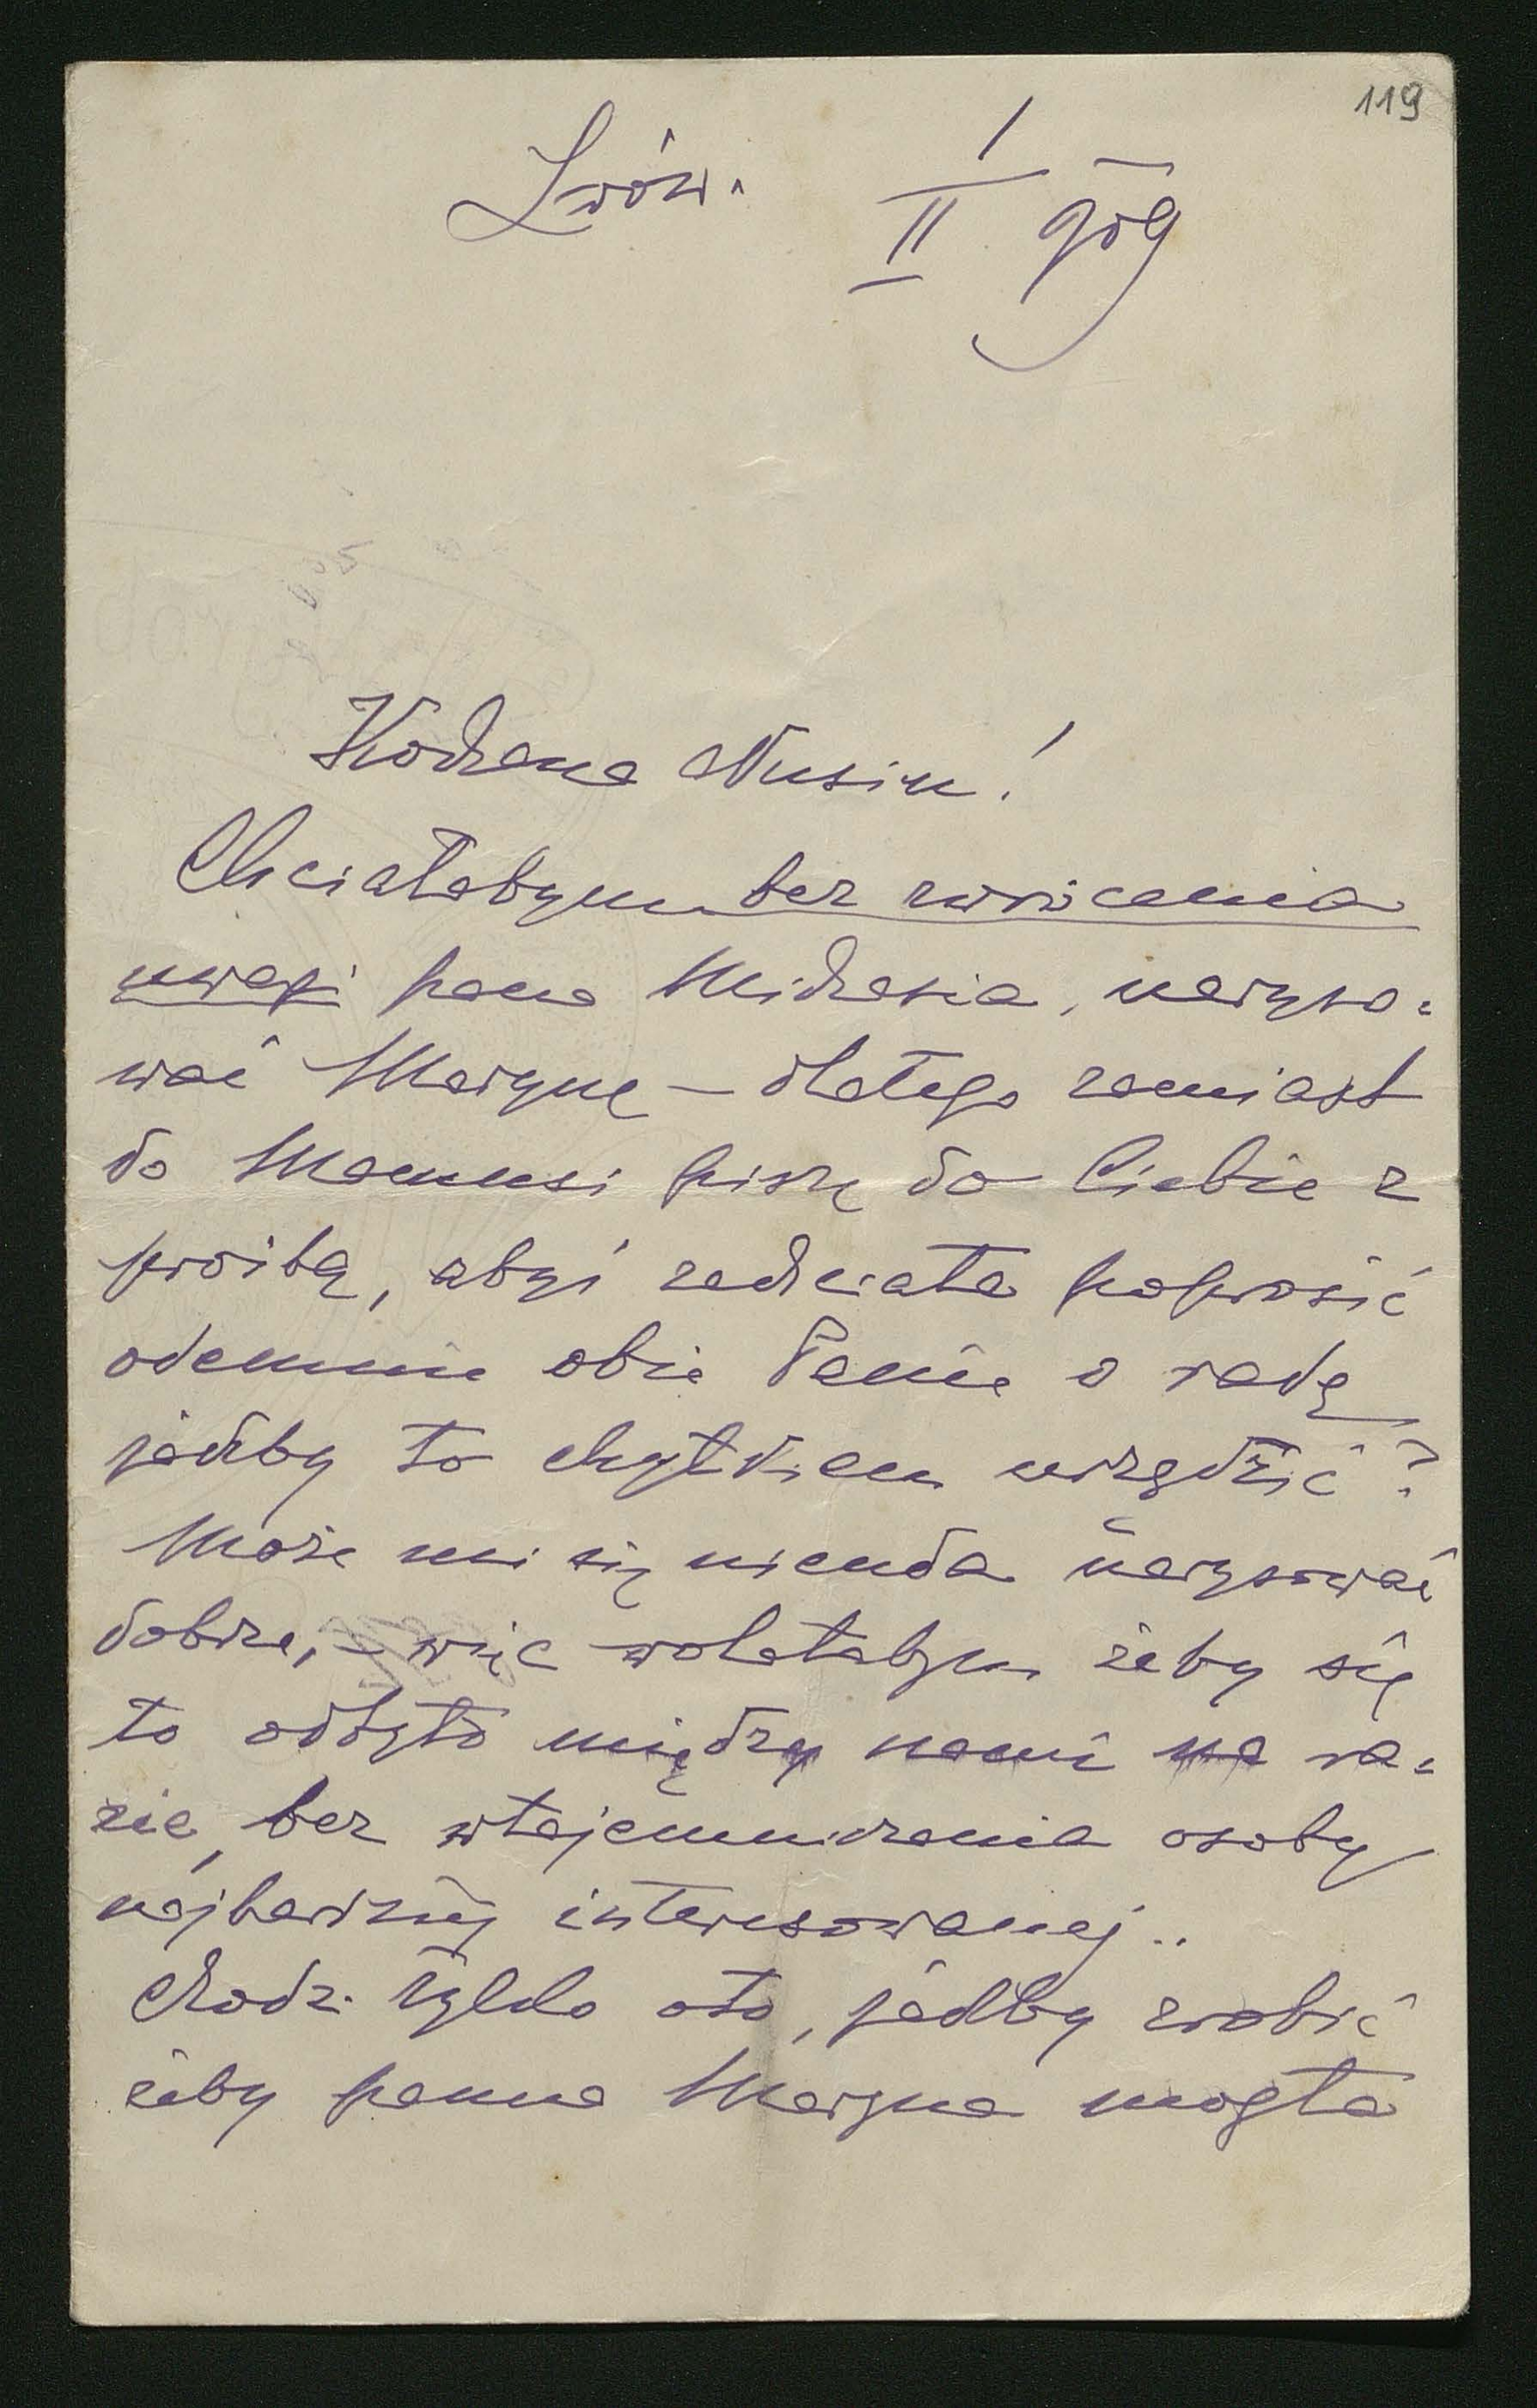 119
Lwów. 1/II 909
Kochana Nusiu!
Chciałabym bez zwrócenia
uwagi pana Michasia, naryso=
wać Marynę – dlatego zamiast
do Mamusi piszę do Ciebie z
prośbą, abyś zechciała poprosić
odemnie obie Panie o radę
jakby to chyłkiem urządzić?
Może mi się nieuda narysować
dobrze, – więc wolałabym żeby się
to odbyło między nami na ra=
zie, bez wtajemniczenia osoby
najbardziéj interesowanej..
Chodzi tylko oto, jakby zrobić
żeby panna Maryna mogła